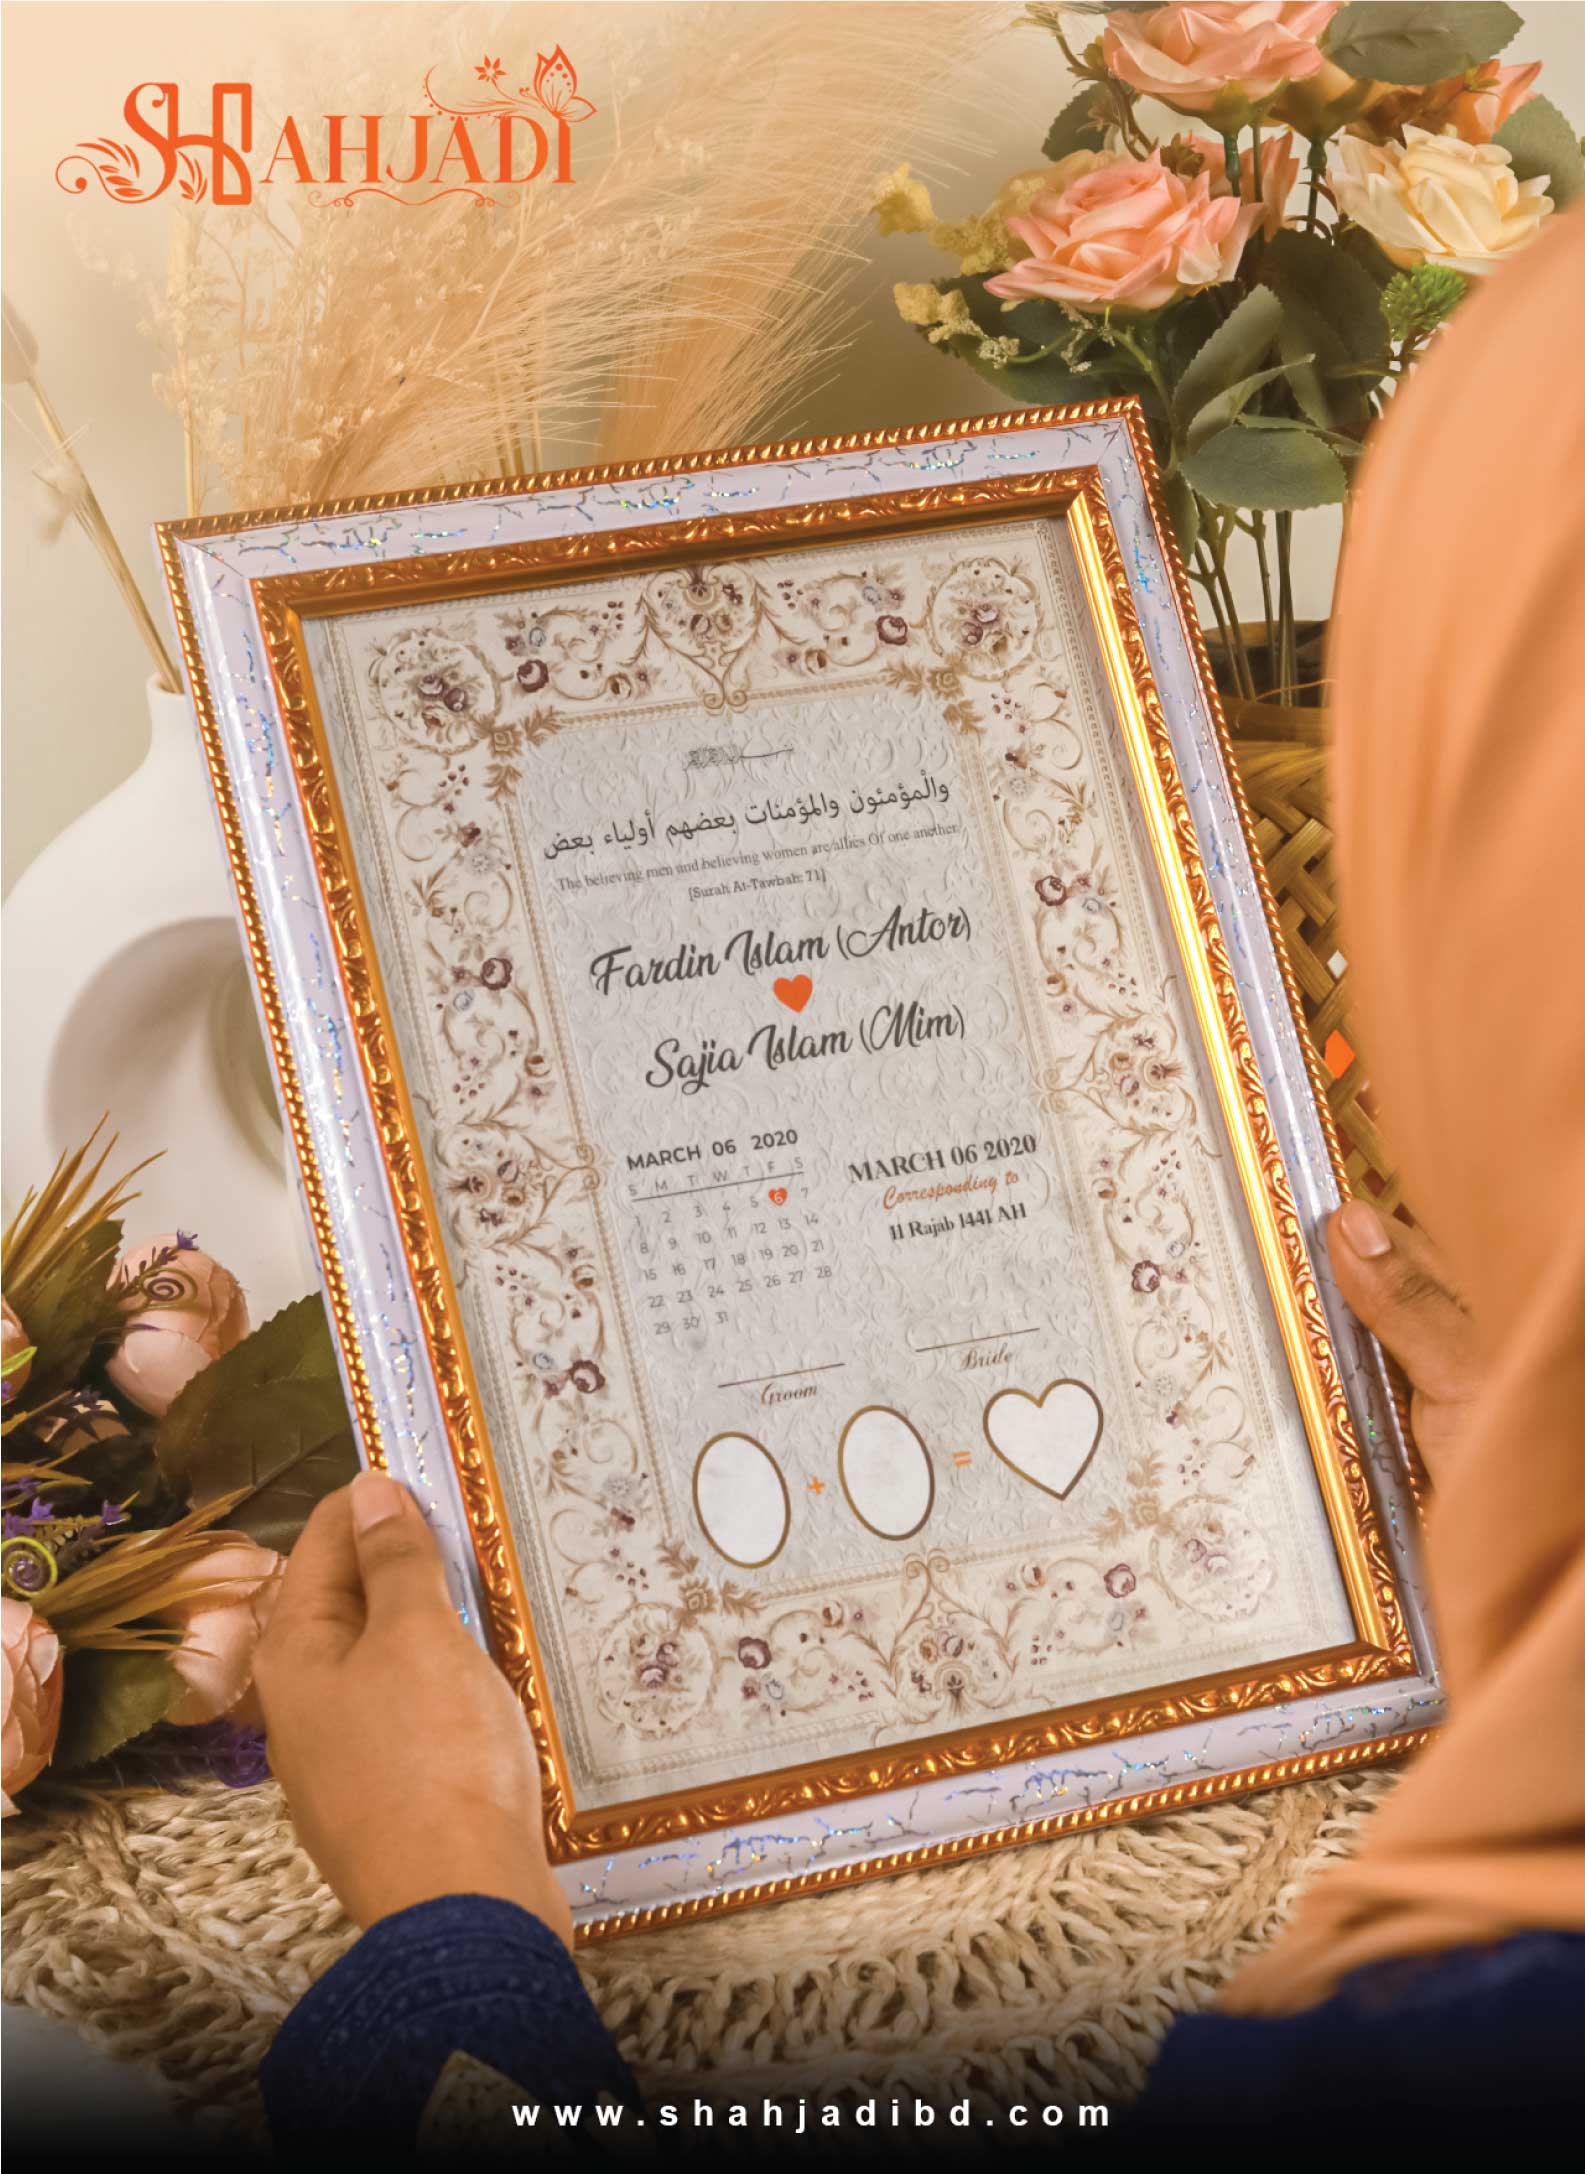 SHAHJADI
والْمؤمنون والمؤمنات بعضهم أولياء بعض
The believing men and believing women are allies Of one another.
[Surah At-Tawbah: 71]
Fardin Islam (Antor)
Sajia Islam (Mim)
MARCH 06 2020
S M T W T F S
1 2 3 4 5 6 7
8 9 10 11 12 13 14
15 16 17 18 19 20 21
22 23 24 25 26 27 28
29 30 31
MARCH 06 2020
Corresponding to
11 Rajab 1441 AH
Groom
Bride
+ =
www.shahjadibd.com